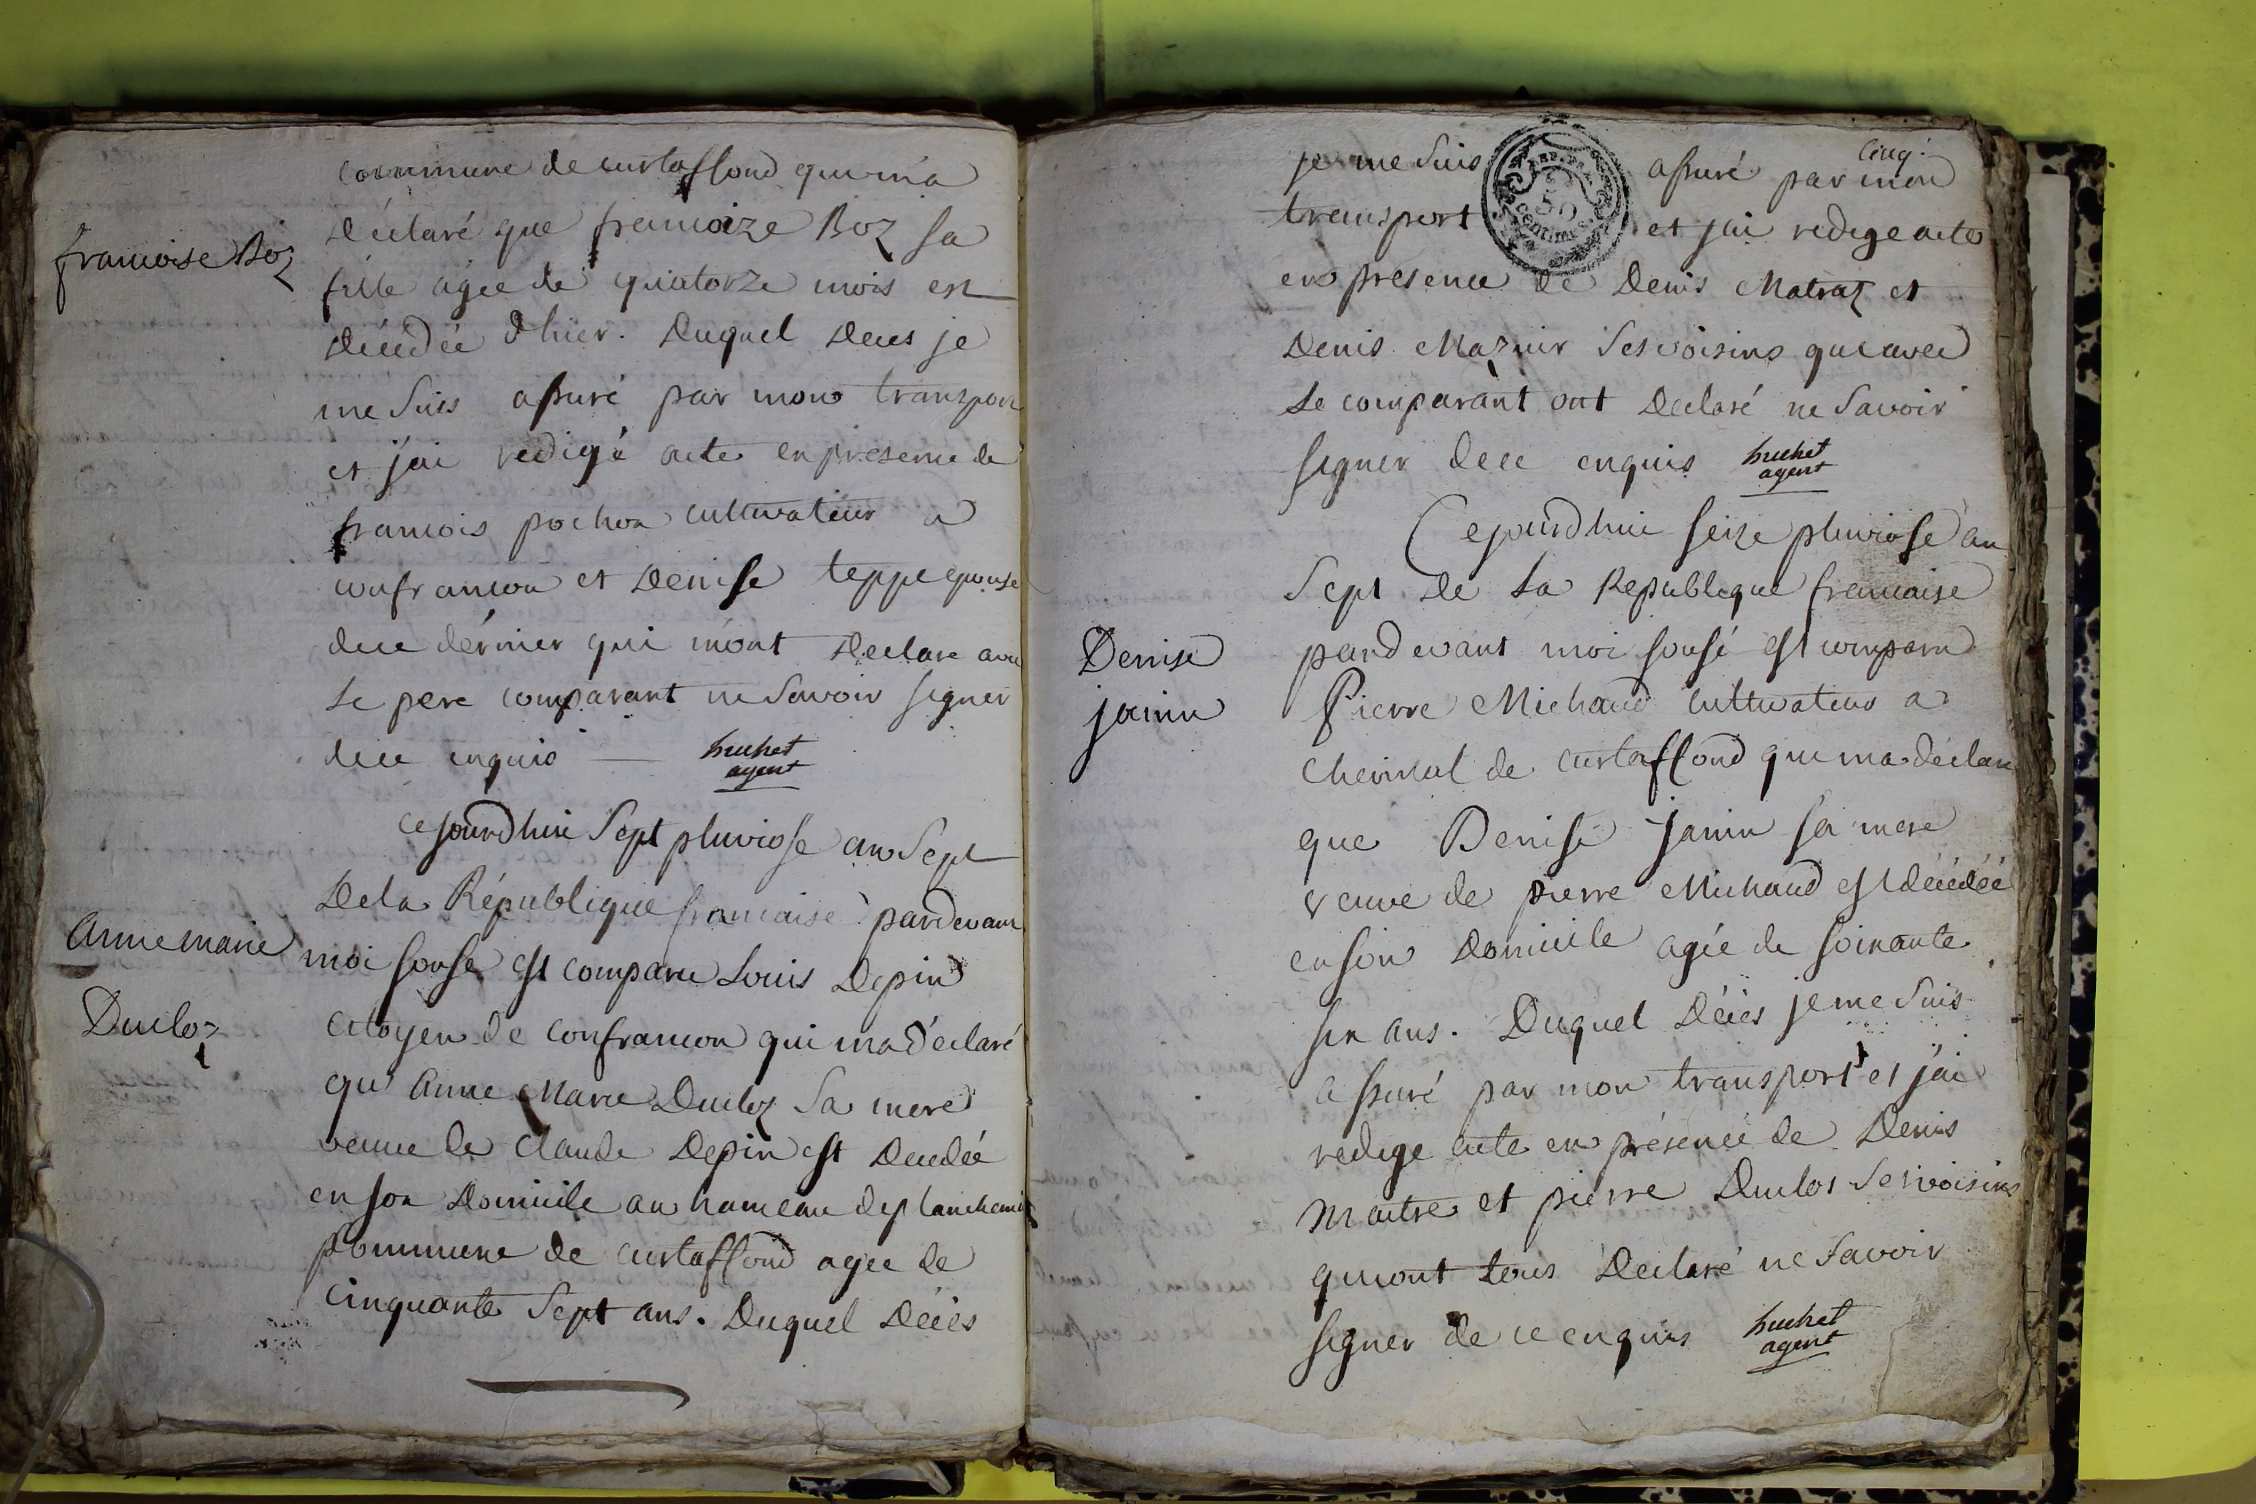 commune de curtaffond qui m'a
françoise Boz
déclaré que francoize Boz sa
fille agée de quatorze mois est
décédée d'hier. Duquel deces je
me suis assuré par mon transport
et j'ai redigé acte en présence de
francois pochon cultivateur a
confrancon et Denise teppe epouse
de ce dérnier qui m'ont declare avec
le pere comparant ne savoir signer
de ce enquis — huchet
agent
Cejourd'huie Sept pluviose an Sept
De la République francaise pardevant
Anne marie
Ducloz
moi sousé est comparu Louis Depin
citoyen de confrancon qui ma déclaré
qu'Anne Marie Ducloz sa mere
veuve de Claude Depin est decedée
en son Domicile au hameau de planchemin
commune de curtaffond agee de
cinquante sept ans. Duquel Décès
cinq.
je me suis assuré par mon
REP. FRA.
50
centimes
transport et j'ai redige acte
en presence de Denis Matraz et
Denis Mazuir ses voisins qui avec
le comparant ont declaré ne savoir
signer de ce enquis huchet
agent
Cejourd'huie seize pluviose an
Sept de la Republique francaise
Denise
janin
pardevant moi sousé est comparu
Pierre Michaud cultivateur a
chevinal de curtaffond qui ma déclaré
que Denise janin sa mere
veuve de pierre Michaud est décédéé
en son Domicile agée de soixante
six ans. Duquel Décès je me suis
assuré par mon transport et j'ai
redige acte en présence de Denis
Maitre et pierre Duclos ses voisins
qui ont tous déclaré ne savoir
signer de ce enquis huchet
agent